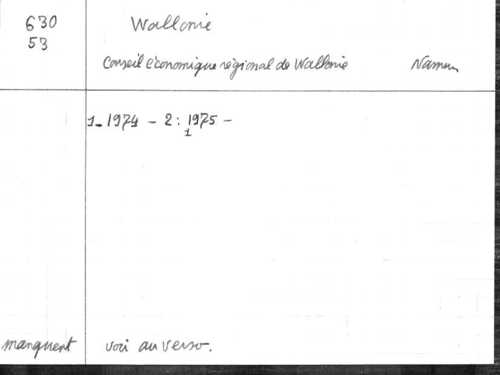 630
53
Wallonie
Conseil économique régional de Wallonie Namur
1-1974 - 2: 1975 -
1
manquent voir au verso.